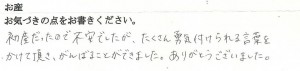 お産
お気づきの点をお書きください。
初産だったので不安でしたが、たくさん勇気付けられる言葉を
かけて頂き、がんばることができました。ありがとうございました。